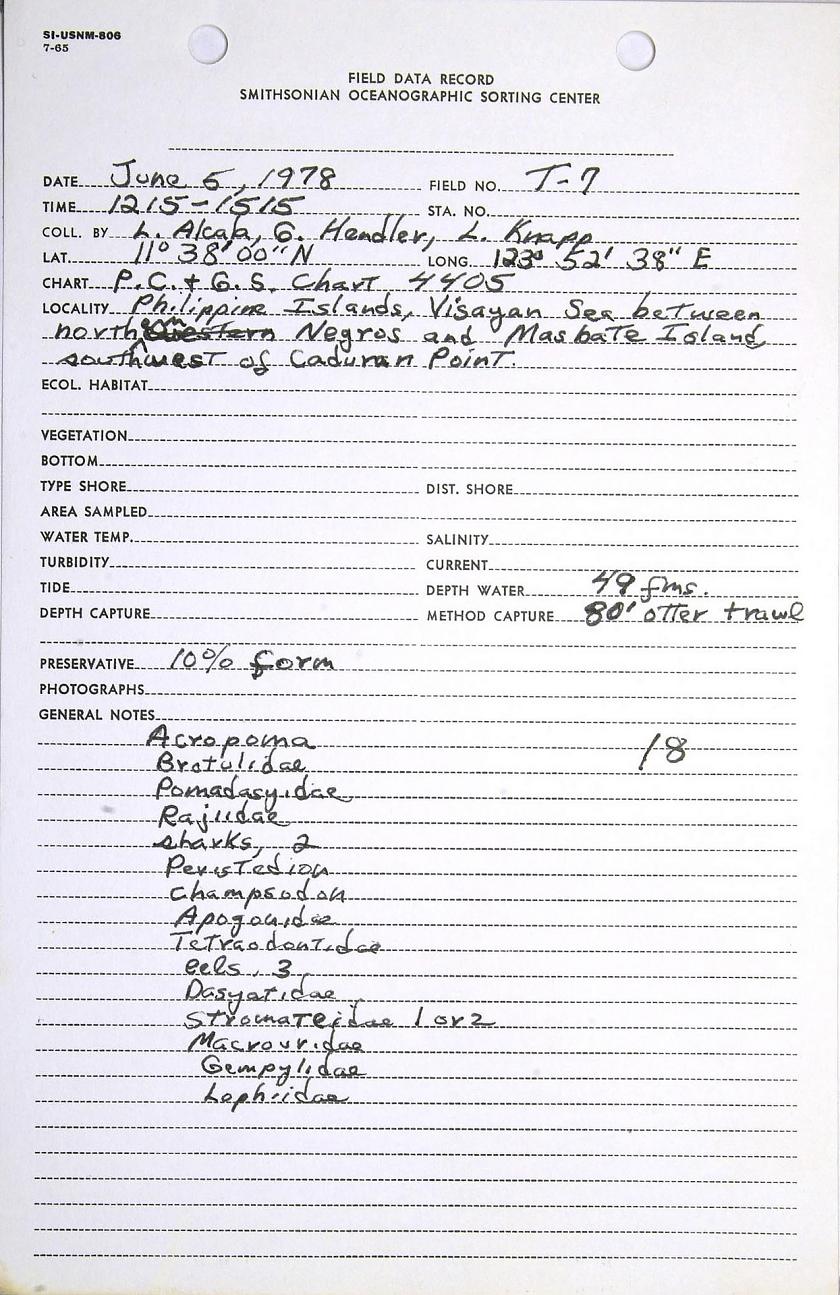 SI-USNM-806
7-65
FIELD DATA RECORD
SMITHSONIAN OCEANOGRAPHIC SORTING CENTER
DATE June 5, 1978 FIELD NO. T-7
TIME 1215-1515 STA. NO.
COLL. BY L. Alcala, G. Hendler, L. Knapp
LAT. 11° 38' 00" N LONG 123° 52' 38" E
CHART P.C. & G.S. Chart 4405
LOCALITY Philippine Islands, Visayan Sea between
northern Negros and Masbate Island
southwest of Caduran Point.
ECOL. HABITAT
VEGETATION
BOTTOM
TYPE SHORE DIST. SHORE
AREA SAMPLED
WATER TEMP. SALINITY
TURBIDITY CURRENT
TIDE DEPTH WATER 49 fms.
DEPTH CAPTURE METHOD CAPTURE 80' otter trawl
PRESERVATIVE 10% form
PHOTOGRAPHS
GENERAL NOTES
Acropoma 18
Brotulidae
Pomadasyidae
Rajidae
sharks, 2
Peristedion
Champsodon
Apogonidae
Tetraodontidae
eels, 3
Dasyatidae
Stromateidae 1 or 2
Macrouridae
Gempylidae
Lophiidae